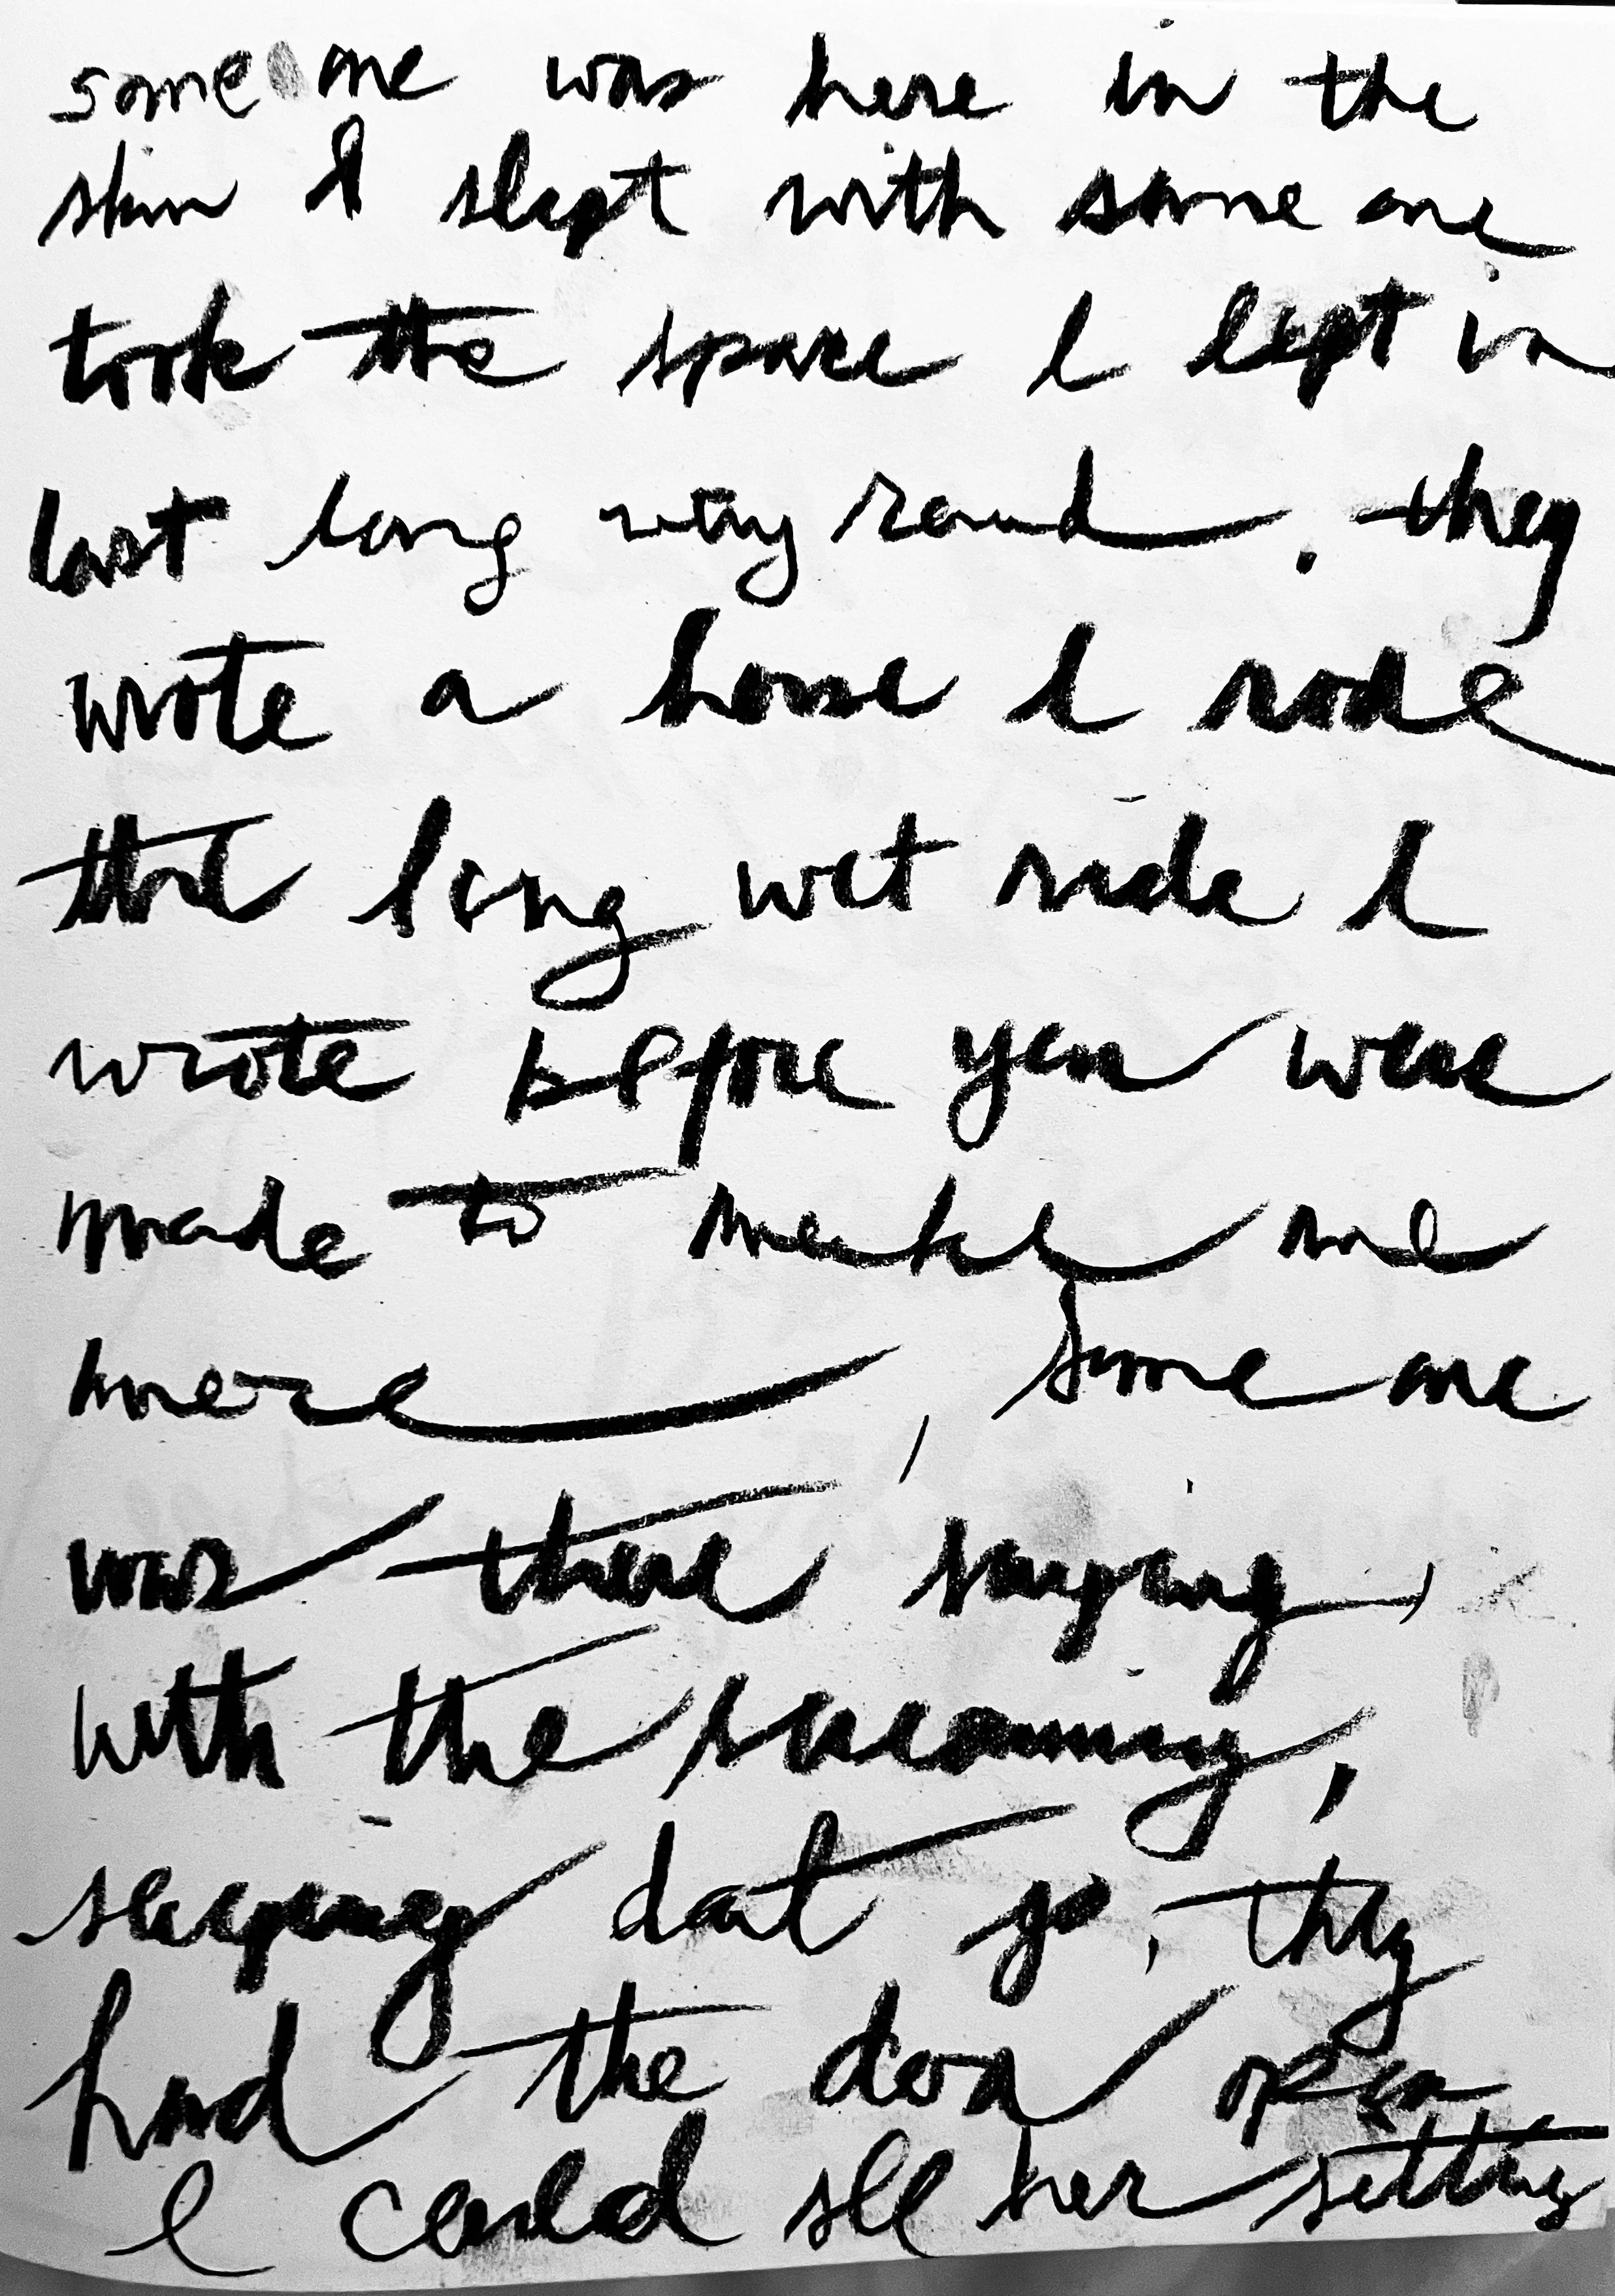 someone was here in the
skin I slept with some one
took the space I kept in
last long way round. they
wrote a horse I rode
that long wet ride I
wrote before you were
made to make me
here, some one
was there saying,
with the screaming,
sleeping dont go, they
had the door open
I could see her sitting